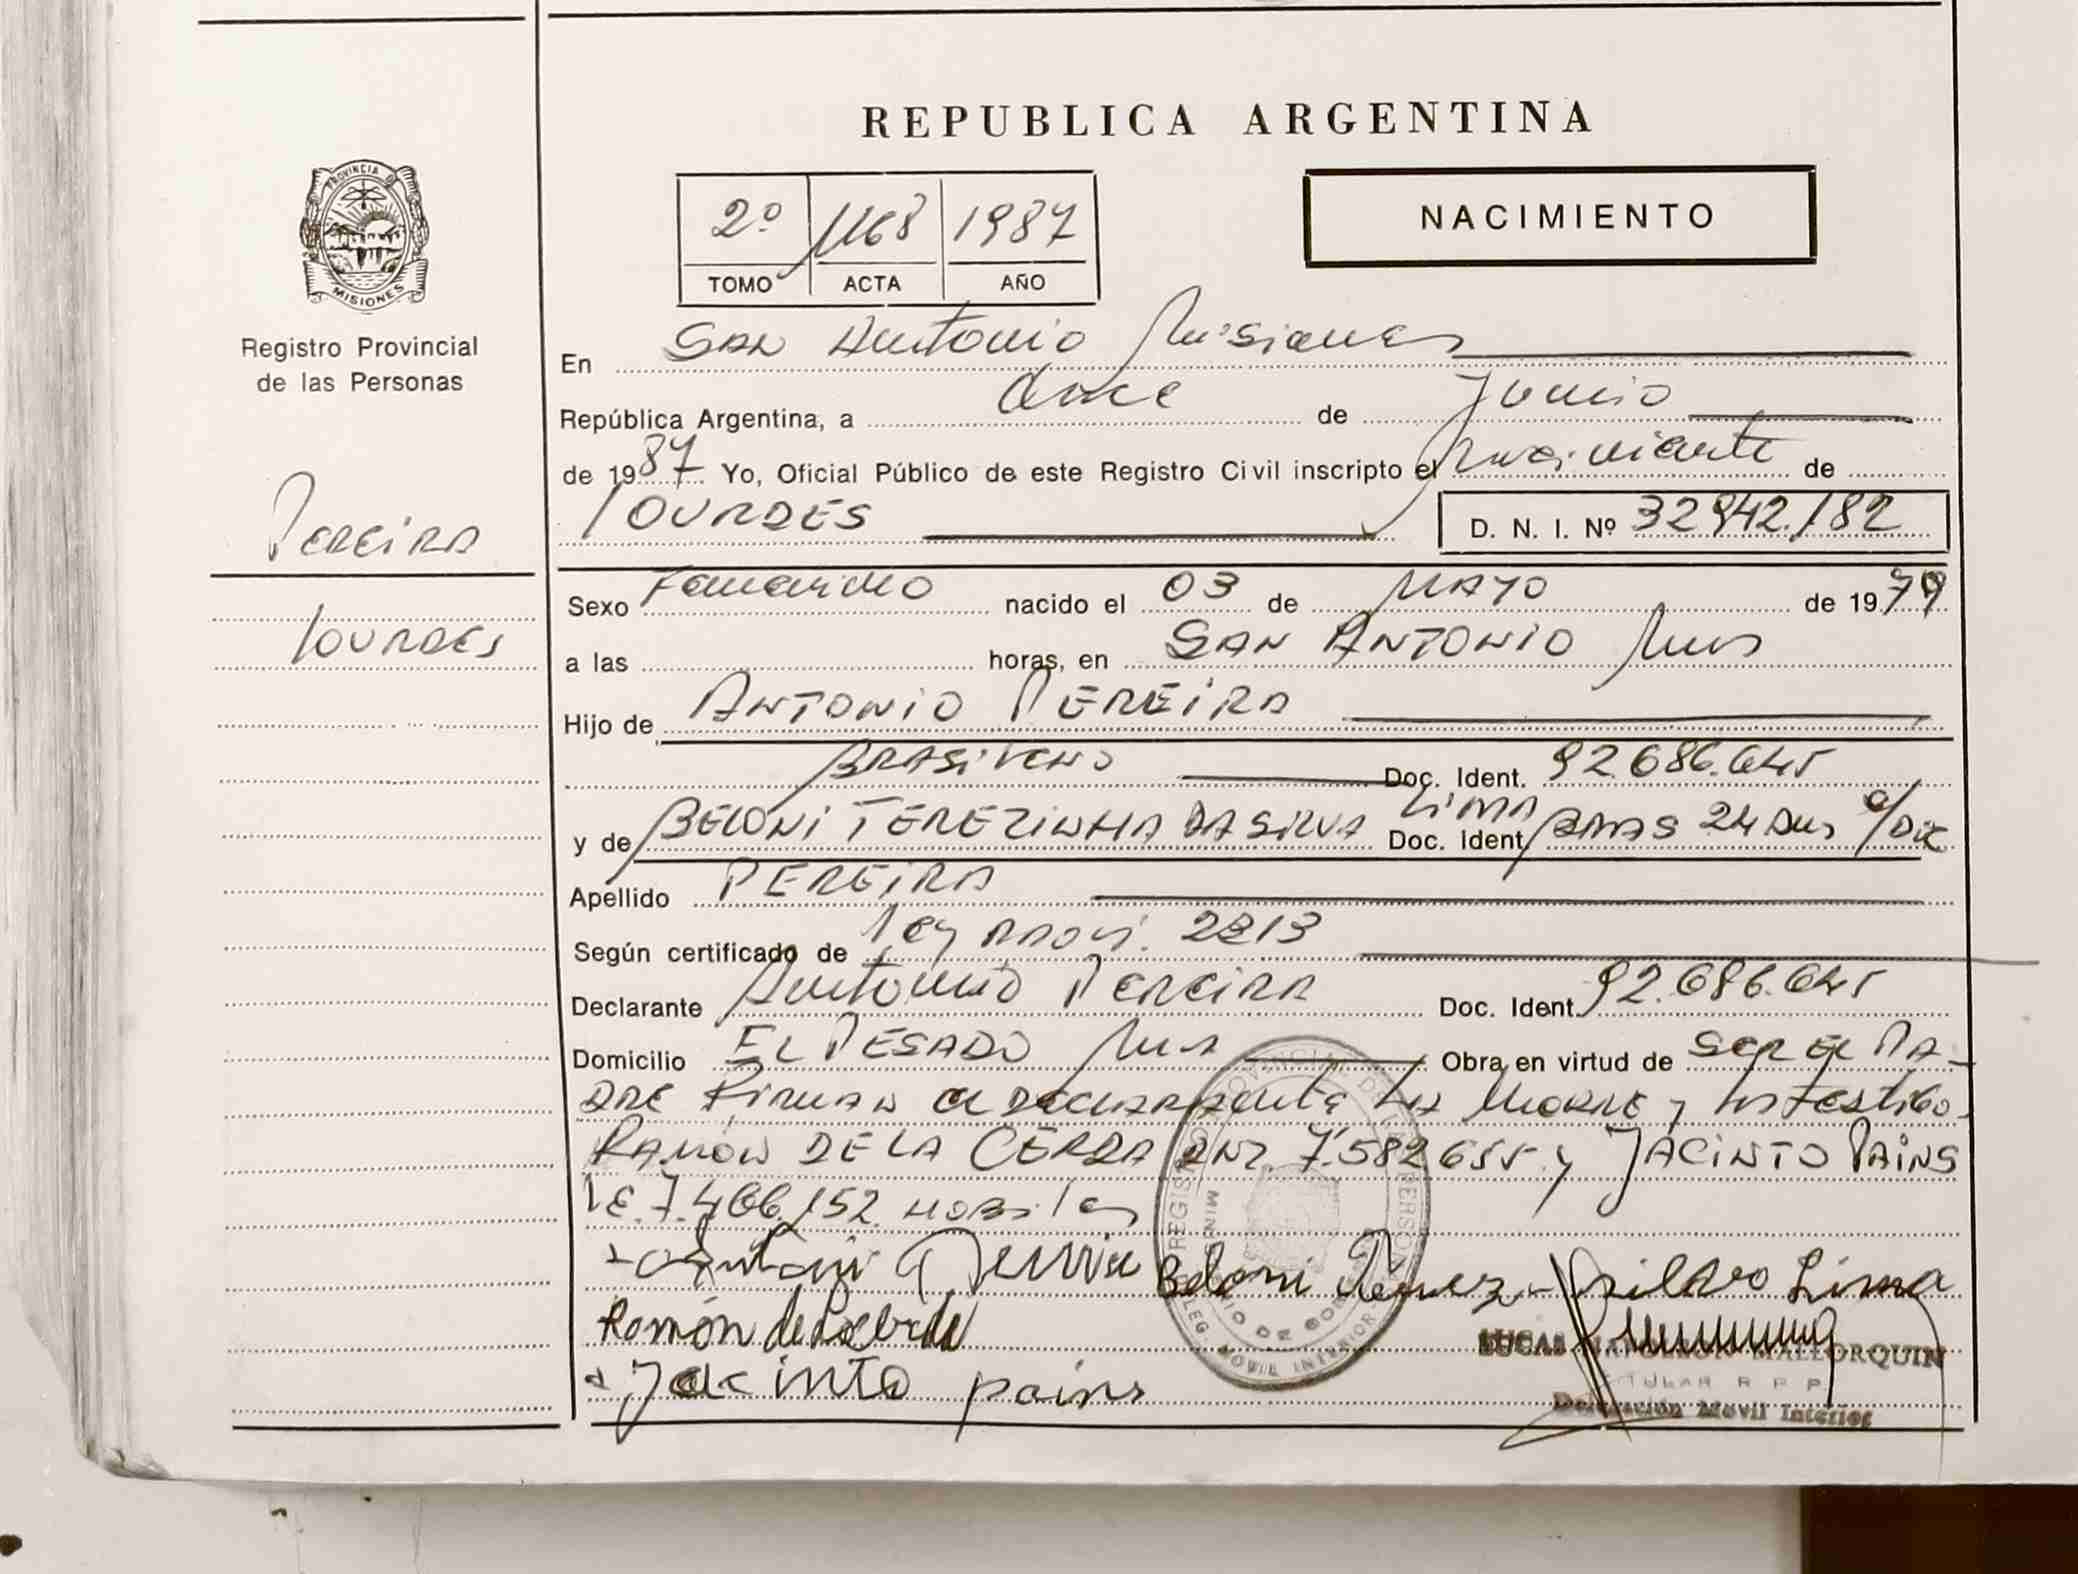 REPUBLICA ARGENTINA
PROVINCIA D
MISIONES
Registro Provincial
de las Personas
2º 1168 1987
TOMO ACTA AÑO
NACIMIENTO
En San Antonio Misiones
República Argentina, a once de Junio
de 1987 Yo, Oficial Público de este Registro Civil inscripto el nacimiento de
LOURDES D. N. I. Nº 32942.182
Pereira
Lourdes
Sexo Femenino nacido el 03 de MAYO de 1979
a las horas, en SAN ANTONIO Mns
Hijo de ANTONIO PEREIRA
BRASILENO Doc. Ident. 92.686.645
y de BELONI TEREZINHA DA SILVA LIMA Doc. Ident. BRAS 24 Años c/Dic
Apellido PEREIRA
Según certificado de Ley 2213
Declarante Antonio Pereira Doc. Ident. 92.686.645
Domicilio EL PESADO Mns Obra en virtud de SER EL PA-
DRE Firman el declarante la Madre y los testigos
RAMÓN DE LA CERDA DNI 7.582655 y JACINTO PAINS
LE. 7.466.152. HOBILES
Beloni Silva Lima
Ramón de la cerda
Jacinto pains
LUCAS NAPOLEON MALLORQUIN
TITULAR R P P
Delegación Movil Interior
REGISTRO PROVINCIAL DE LAS PERSONAS
MINISTERIO DE GOBIERNO
DELEG. MOVIL INTERIOR